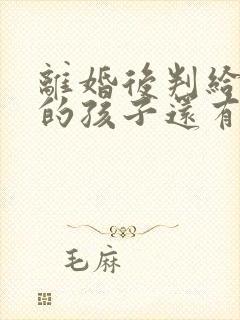 離婚後判給
的孩子還有
毛麻